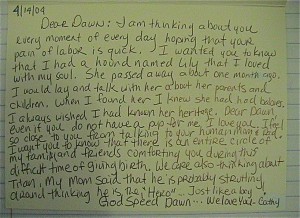 4/19/04
Dear Dawn: I am thinking about you
every moment of every day hoping that your
pain of labor is quick. I wanted you to know
that I had a hound named Lily that I loved
with my soul. She passed away about one month ago.
I would lay and talk with her about her parents and
children. When I found her I knew she had had babies.
I always wished I had known her heritage. Dear Dawn,
even if you do not have a pic for me, I love you. I feel
so close to you from talking to your human Mame and
want you to know that there is an entire circle of
my family and friends comforting you during this
difficult time of giving birth. We are also thinking about
Titan. My Mom said that he is probably strutting
around thinking he is the "Hoco"... Just like a boy
God Speed Dawn... We love Ya.. Cathy